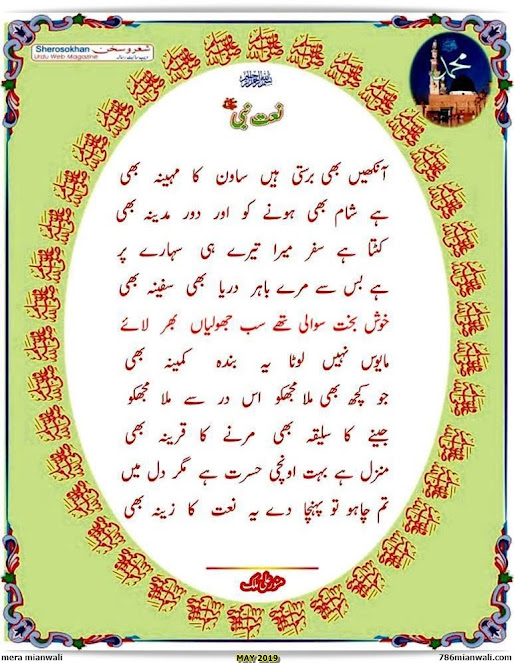 Sherosokhan شعر و سخن
Urdu Web Magazine
محمد
نعت نبی ﷺ
آنکھیں بھی برستی ہیں ساون کا مہینہ بھی
ہے شام بھی ہونے کو اور دور مدینہ بھی
کٹتا ہے سفر میرا تیرے ہی سہارے پر
ہے بس سے مرے باہر دریا بھی سفینہ بھی
خوش بخت سوالی تھے سب جھولیاں بھر لائے
مایوس نہیں لوٹا یہ بندہ کمینہ بھی
جو کچھ بھی ملا مجھکو اس در سے ملا مجھکو
جینے کا سلیقہ بھی مرنے کا قرینہ بھی
منزل ہے بہت اونچی حسرت ہے مگر دل میں
تم چاہو تو پہنچا دے یہ نعت کا زینہ بھی
منور علی ملک
mera mianwali
MAY 2019
786mianwali.com